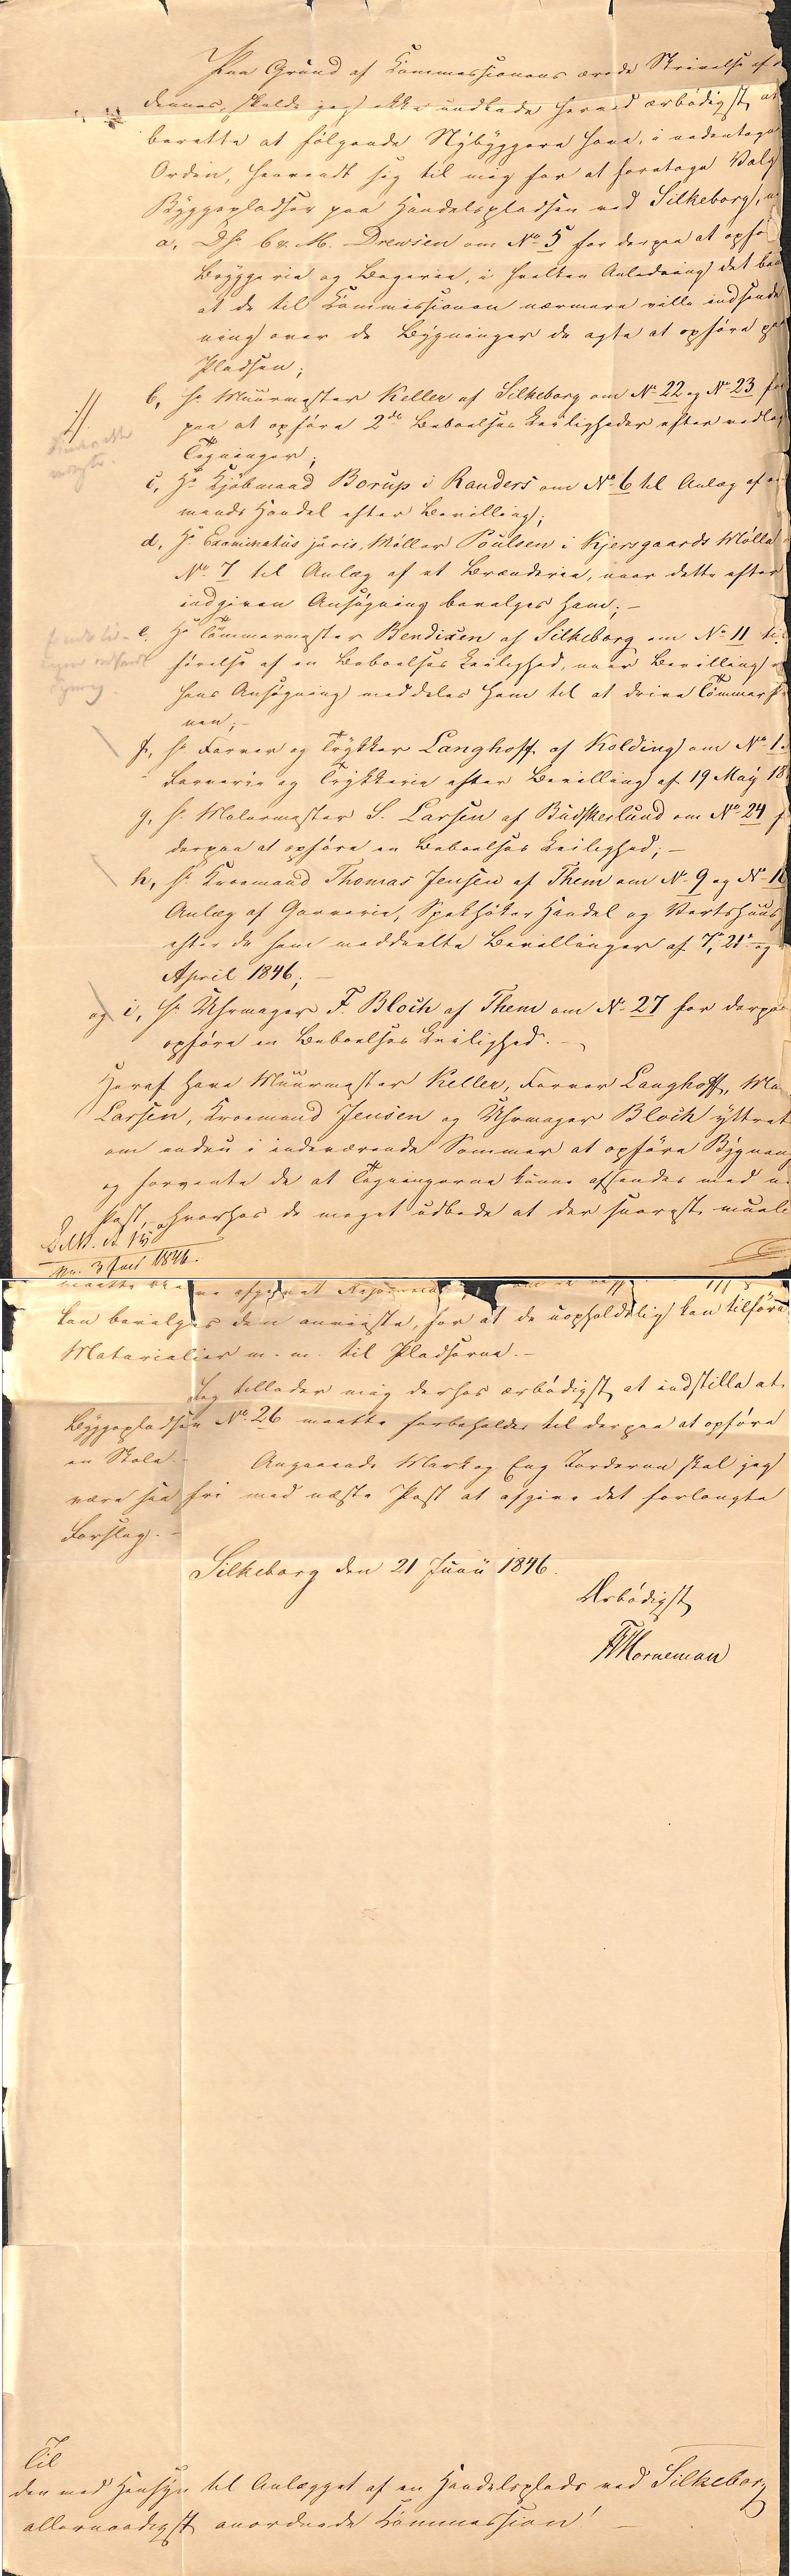 Paa Grund af Commissionens ærede Skrivelse af
dennes, skulde jeg ikke undlade herved ærbødigst, at
berette at følgende Nÿbÿggere have, i nedentagne
Orden, henvendt sig til mig for at foretage Valg
Bÿggepladser paa Handelspladsen ved Silkeborg,
a, DHr. Br. M. Drewsen om No 5 for derpaa at opfø
Brÿggerie og Bagerie, i hvilken Anledning det be
at de til Commissionen nærmere ville indsende
ning over de Bÿgninger de agte at opføre paa
Pladsen;
b, Hr Muurmester Keller af Silkeborg om No 22 og No 23 for
paa at opføre 2de Beboelses Leiligheder efter vedlag
Tegninger;
c, Hr Kjøbmand Borup i Randers om No 6 til Anlæg af
mands Handel efter Bevilling;
d, Hr Examinatus juris, Møller Poulsen i Kjersgaards Mølle
No 7 til Anlæg af et Brænderie, naar dette efter
indgiven Ansøgning bevilges ham; -
e, Hr Tømmermester Bendixen af Silkeborg om No 11 til
førelse af en Beboelses Leilighed, naar Bevilling
hans Ansøgning meddeles ham til at drive Tømmer
f, Hr Farver og Trÿkker Langhoff af Kolding om No 1
Farverie og Trÿkkerie efter Bevilling af 19 Maÿ 18
g, Hr Malermester S. Larsen af Budskerlund om No 24 f
derpaa at opføre en Beboelses Leilighed; -
h, Hr Kroemand Thomas Jensen af Them om No 9 og No
Anlæg af Garverie, Spekhøker Handel og Vertshuus
efter de ham meddeelte Bevillinger af 7, 21 og
April 1846; -
og i, Hr Uhrmager F. Bloch af Them om No 27 for derpaa
opføre en Beboelses Leilighed. -
Heraf have Muurmester Keller, Farver Langhoff, Ma
Larsen, Kroemand Jensen og Uhrmager Bloch ÿttret
om endnu i indeværende Sommer at opføre Bÿgning
og forvente de at Tegningerne kunne afsendes med
Post, hvorhos de meget udbede at der snarest muel
3 Juli 1846.
kan bevilges dem anviiste, for at de uopholdelig kan tilføre
Materialier m. m. til Pladserne. -
Jeg tillader mig derhos ærbødigst at indstille at
Bÿggepladsen No 26 maatte forbeholdes til derpaa at opføre
en Skole. - Angaaende Mark og Eng Jorderne skal jeg
være saa fri med næste Post at afgive det forlangte
Forslag. -
Silkeborg den 21 Junii 1846.
Ærbødigst
Horneman
Til
den med Hensÿn til Anlægget af en Handelsplads ved Silkeborg
allernaadigst anordnede Commission! -